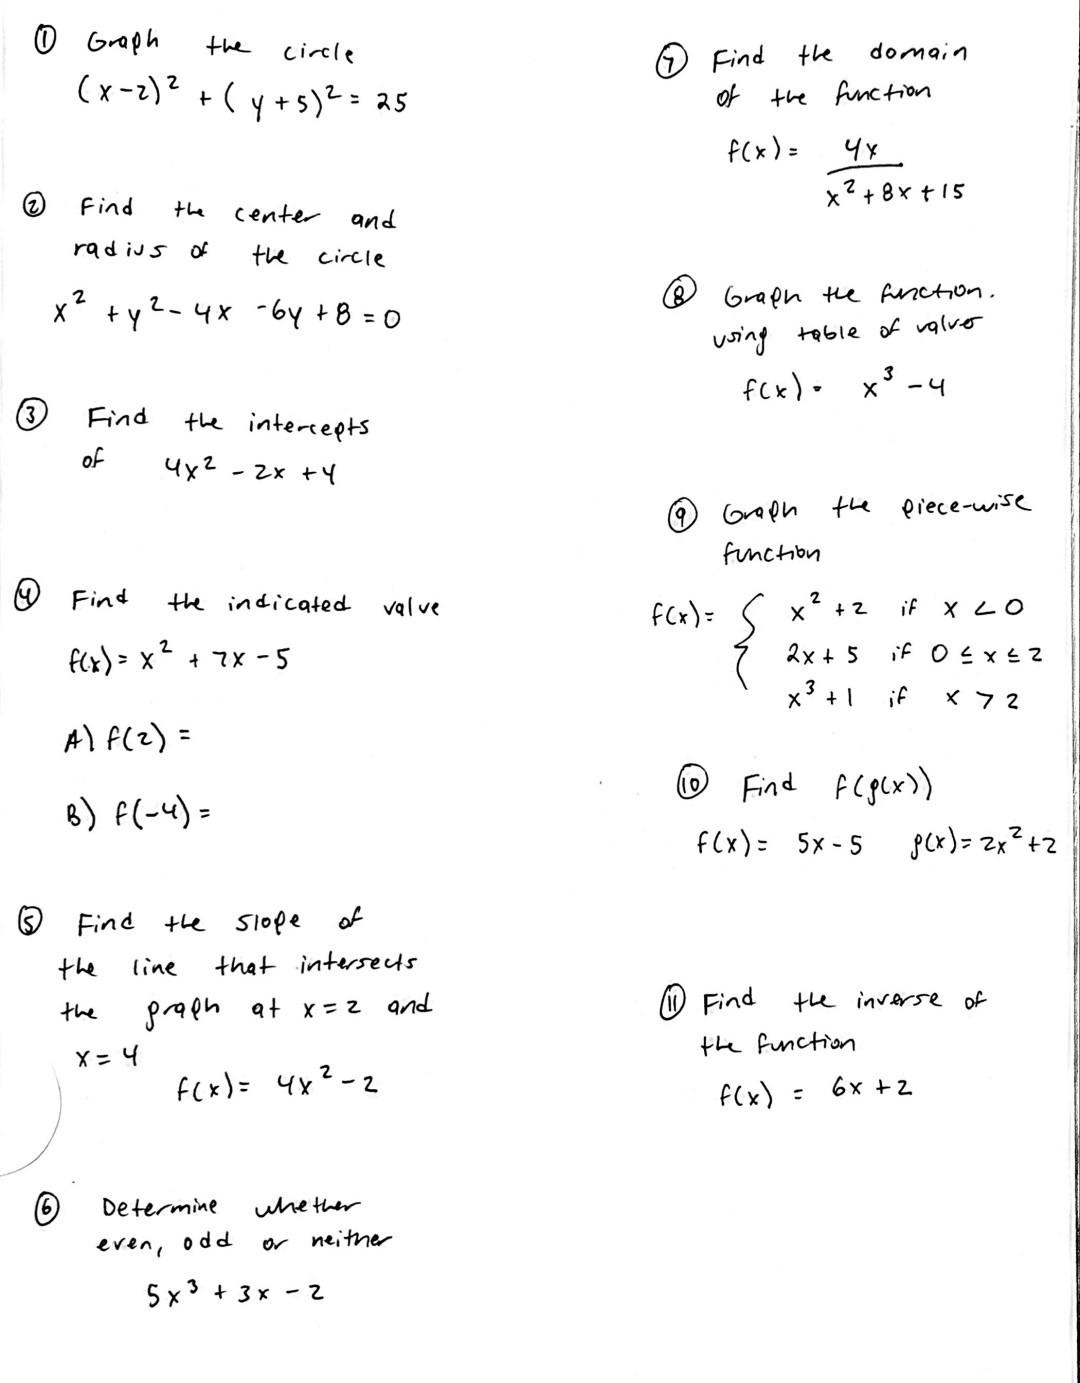 ① Graph the circle
(x-2)² + (y+5)² = 25
② Find the center and
radius of the circle
x² + y² - 4x - 6y + 8 = 0
③ Find the intercepts
of 4x² - 2x + 4
④ Find the indicated value
f(x) = x² + 7x - 5
A) f(2) =
B) f(-4) =
⑤ Find the slope of
the line that intersects
the graph at x = 2 and
x = 4
f(x) = 4x² - 2
⑥ Determine whether
even, odd or neither
5x³ + 3x - 2
⑦ Find the domain
of the function
f(x) = 4x
x² + 8x + 15
⑧ Graph the function.
using table of values
f(x) = x³ - 4
⑨ Graph the piece-wise
function
f(x) = { x² + 2 if x < 0
2x + 5 if 0 ≤ x ≤ 2
x³ + 1 if x > 2
⑩ Find f(g(x))
f(x) = 5x - 5 g(x) = 2x² + 2
⑪ Find the inverse of
the function
f(x) = 6x + 2